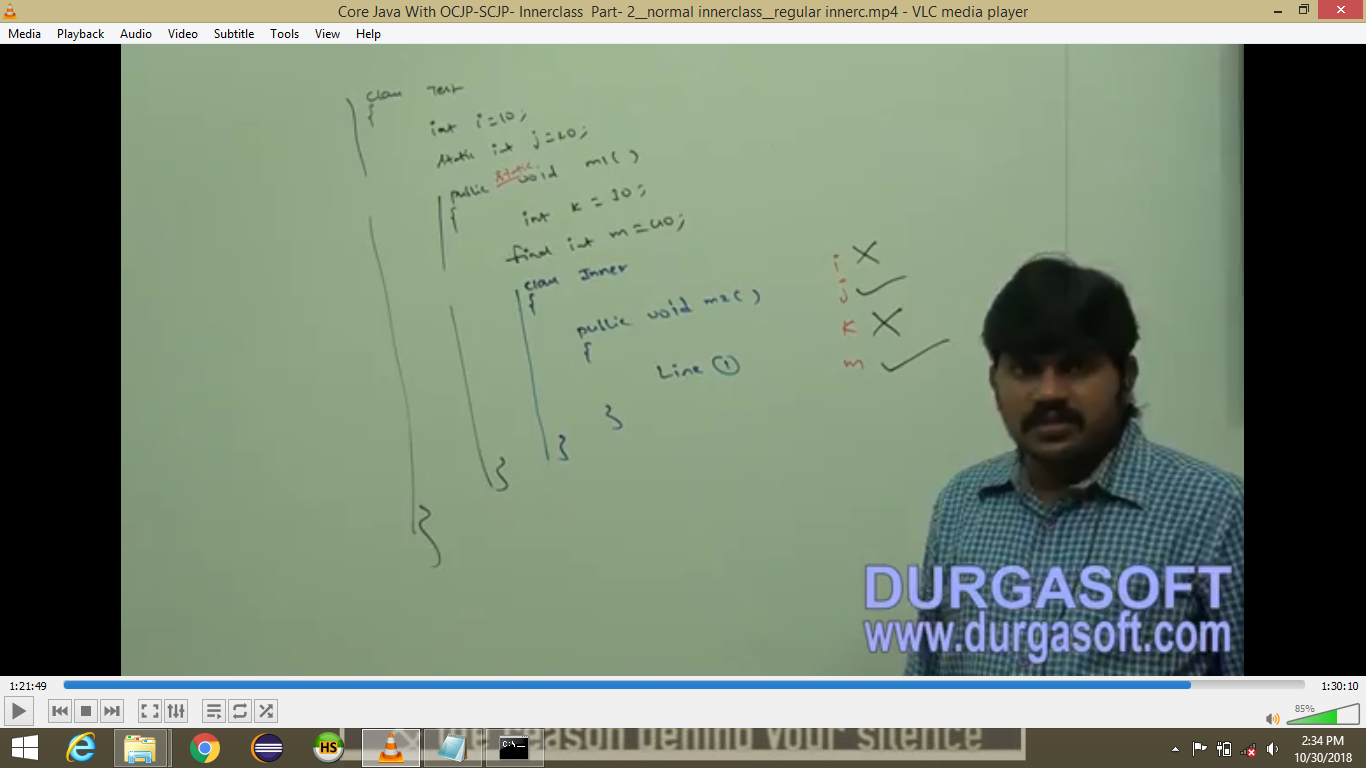 Core Java With OCJP-SCJP- Innerclass  Part- 2__normal innerclass__regular innerc.mp4 - VLC media player
Media Playback Audio Video Subtitle Tools View Help
class Test
{
int i=10;
static int j=20;
public static void m1( )
{
int k = 30;
final int m=40;
class Inner
{
public void m2( )
{
Line 1
}
}
}
}
i X
j ✓
k X
m ✓
DURGASOFT
www.durgasoft.com
1:21:49
1:30:10
85%
HS
C:\._
eason behind your silence
2:34 PM
10/30/2018